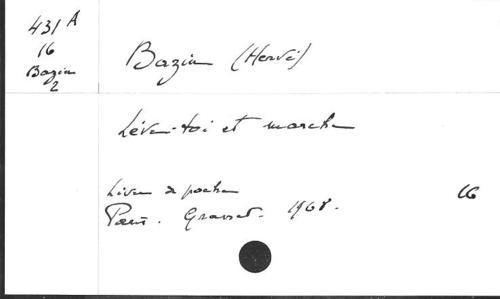 431 A
16
Bazin
2
Bazin (Hervé)
Lève-toi et marche
Livre de poche
Paris. Grasset. 1968.
CG